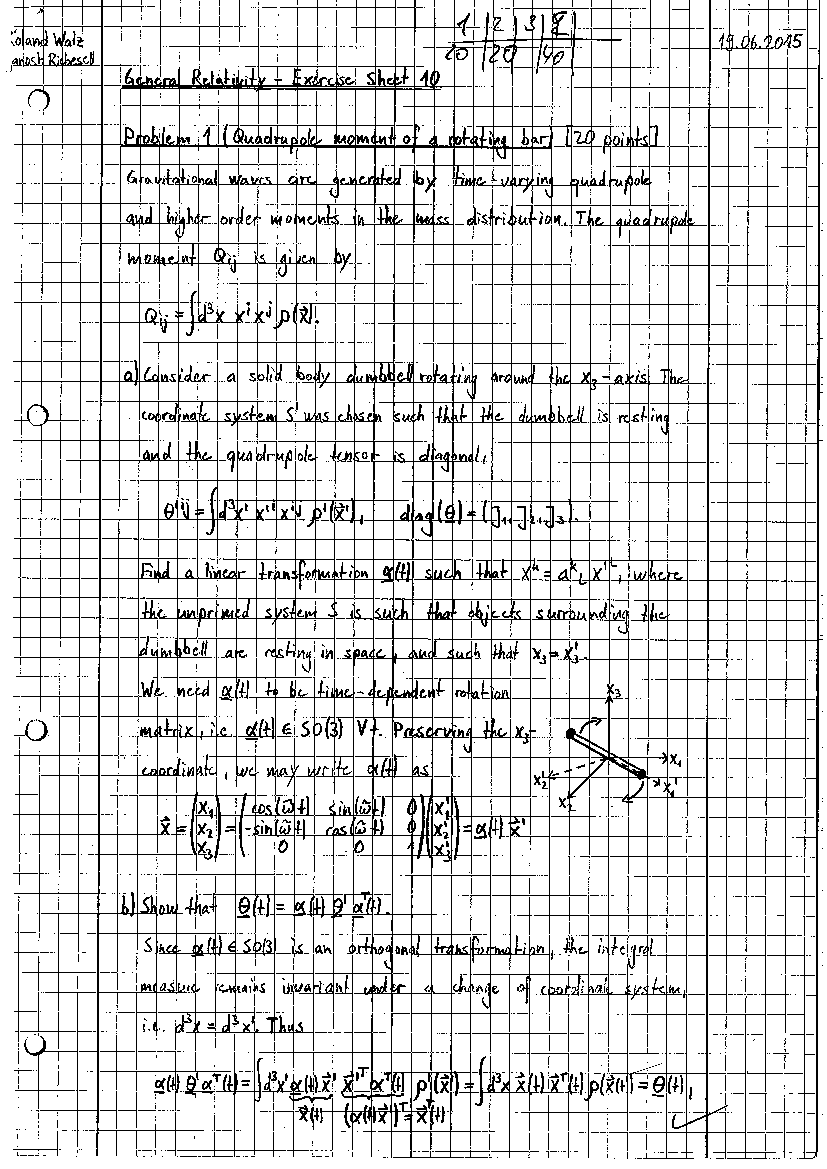 1 | 2 | 3 | Σ
20 | 20 | 40
Roland Walz
Janosh Riebesell
19.06.2015
General Relativity - Exercise Sheet 10
Problem 1 (Quadrupole moment of a rotating bar) [20 points]
Gravitational waves are generated by time-varying quadrupole
and higher order moments in the mass distribution. The quadrupole
moment Qij is given by
Qij = ∫d³x xⁱ xʲ ρ(x⃗).
a) Consider a solid body dumbbell rotating around the x₃-axis. The
coordinate system S' was chosen such that the dumbbell is resting
and the quadrupole tensor is diagonal,
θ'ⁱʲ = ∫d³x' x'ⁱ x'ʲ ρ'(x⃗'), diag(θ) = (J₁, J₂, J₃).
Find a linear transformation α(t) such that xᵏ = aᵏ_L x'ᴸ, where
the unprimed system S is such that objects surrounding the
dumbbell are resting in space, and such that x₃ = x₃'.
We need α(t) to be time-dependent rotation
matrix, i.e. α(t) ∈ SO(3) ∀t. Preserving the x₃-
coordinate, we may write α(t) as
x₃
x₁
x₁'
x₂'
x₂
x⃗ = (x₁ x₂ x₃) = (cos(ω̃t) sin(ω̃t) 0; -sin(ω̃t) cos(ω̃t) 0; 0 0 1)(x₁' x₂' x₃') = α(t) x⃗'
b) Show that θ(t) = α(t) θ' αᵀ(t).
Since α(t) ∈ SO(3) is an orthogonal transformation, the integral
measure remains invariant under a change of coordinate system,
i.e. d³x = d³x'. Thus
α(t) θ' αᵀ(t) = ∫d³x' α(t) x⃗' x⃗'ᵀ αᵀ(t) ρ'(x⃗') = ∫d³x x⃗(t) x⃗ᵀ(t) ρ(x⃗(t)) = θ(t),
x⃗(t) (α(t)x⃗')ᵀ = x⃗ᵀ(t)